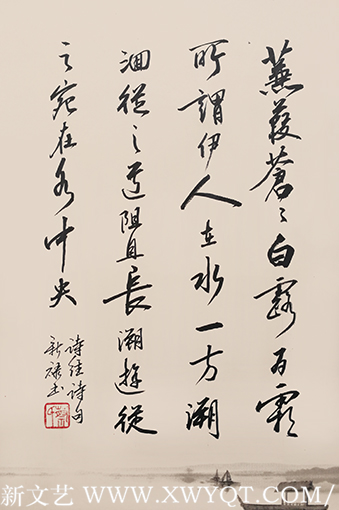 蒹葭蒼々白露为霜
所謂伊人在水一方溯
洄從之道阻且長溯遊從
之宛在水中央
诗经诗句
新文艺 WWW.XWYQT.COM/